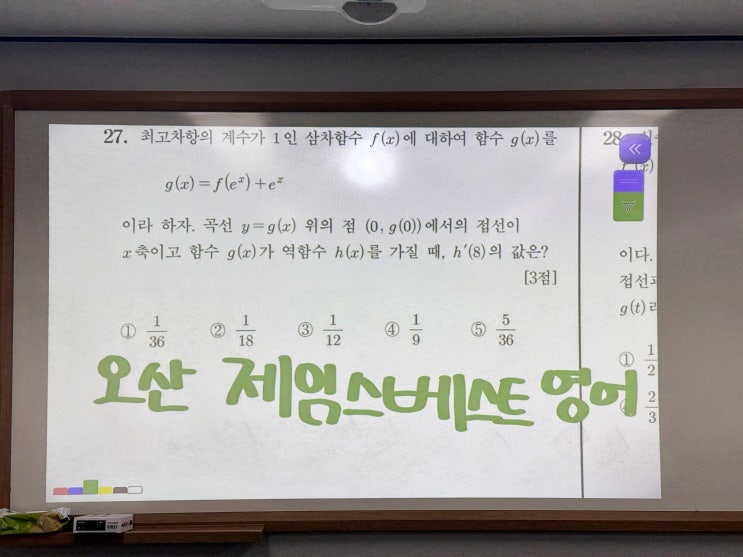 27. 최고차항의 계수가 1인 삼차함수 f(x)에 대하여 함수 g(x)를
g(x)=f(e^x)+e^x
이라 하자. 곡선 y=g(x) 위의 점 (0, g(0))에서의 접선이
x축이고 함수 g(x)가 역함수 h(x)를 가질 때, h′(8)의 값은?
[3점]
① 1/36 ② 1/18 ③ 1/12 ④ 1/9 ⑤ 5/36
오산 제임스베스트 영어
28.
이다.
접선
g(t)
① 1/2
2/3